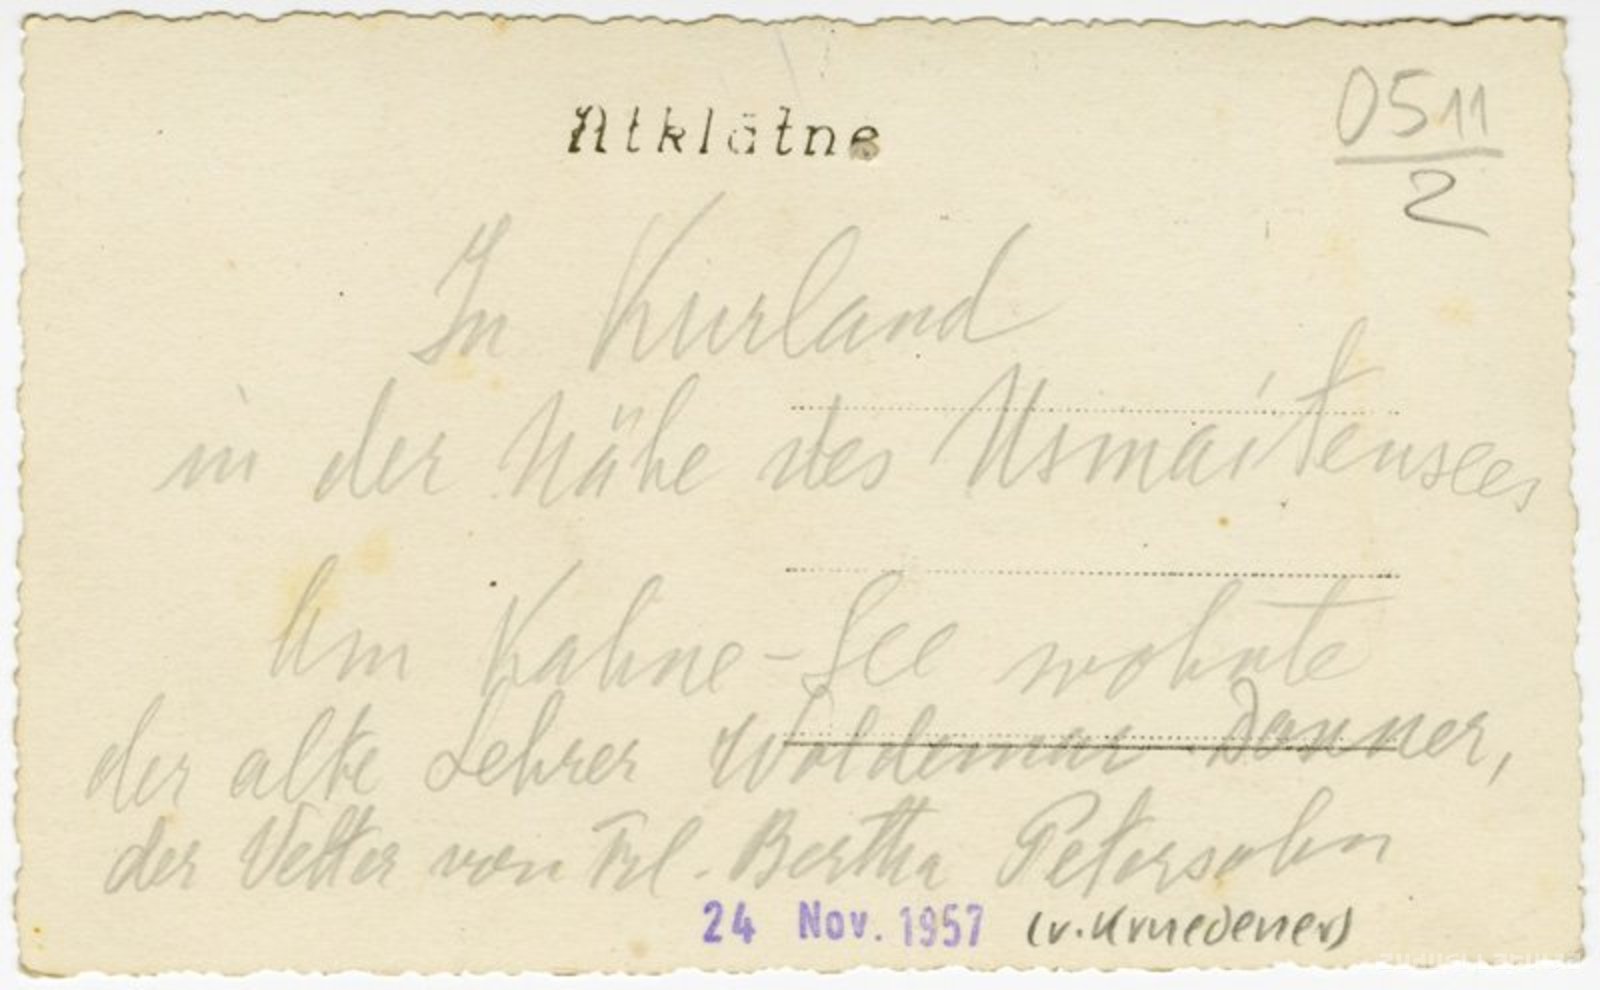 Atklātne
0511
2
In Kurland
in der Nähe des Usmaitensees
Am Kahne-See wohnte
der alte Lehrer Woldemar Danner,
der Vetter von Frl. Bertha Petersohn
24 Nov. 1957 (v. Kruedener)